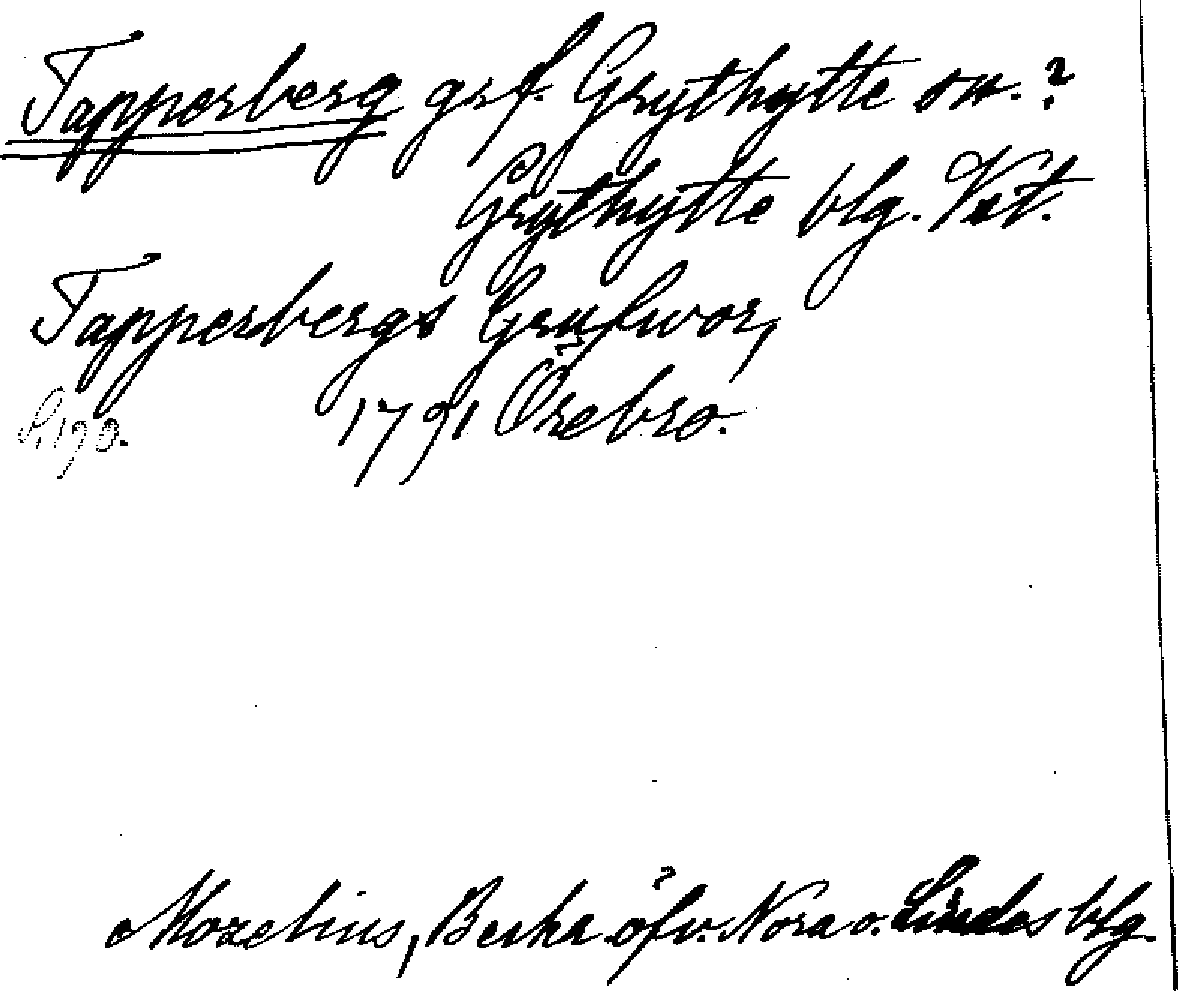 Tapperberg grf. Grythytte sn.?
Grythytte blg. Vst.
Tapperbergs Grufwor,
S. 190. 1791 Örebro.
Morelius, Beskr. öfv. Nora o. Lindes blg.